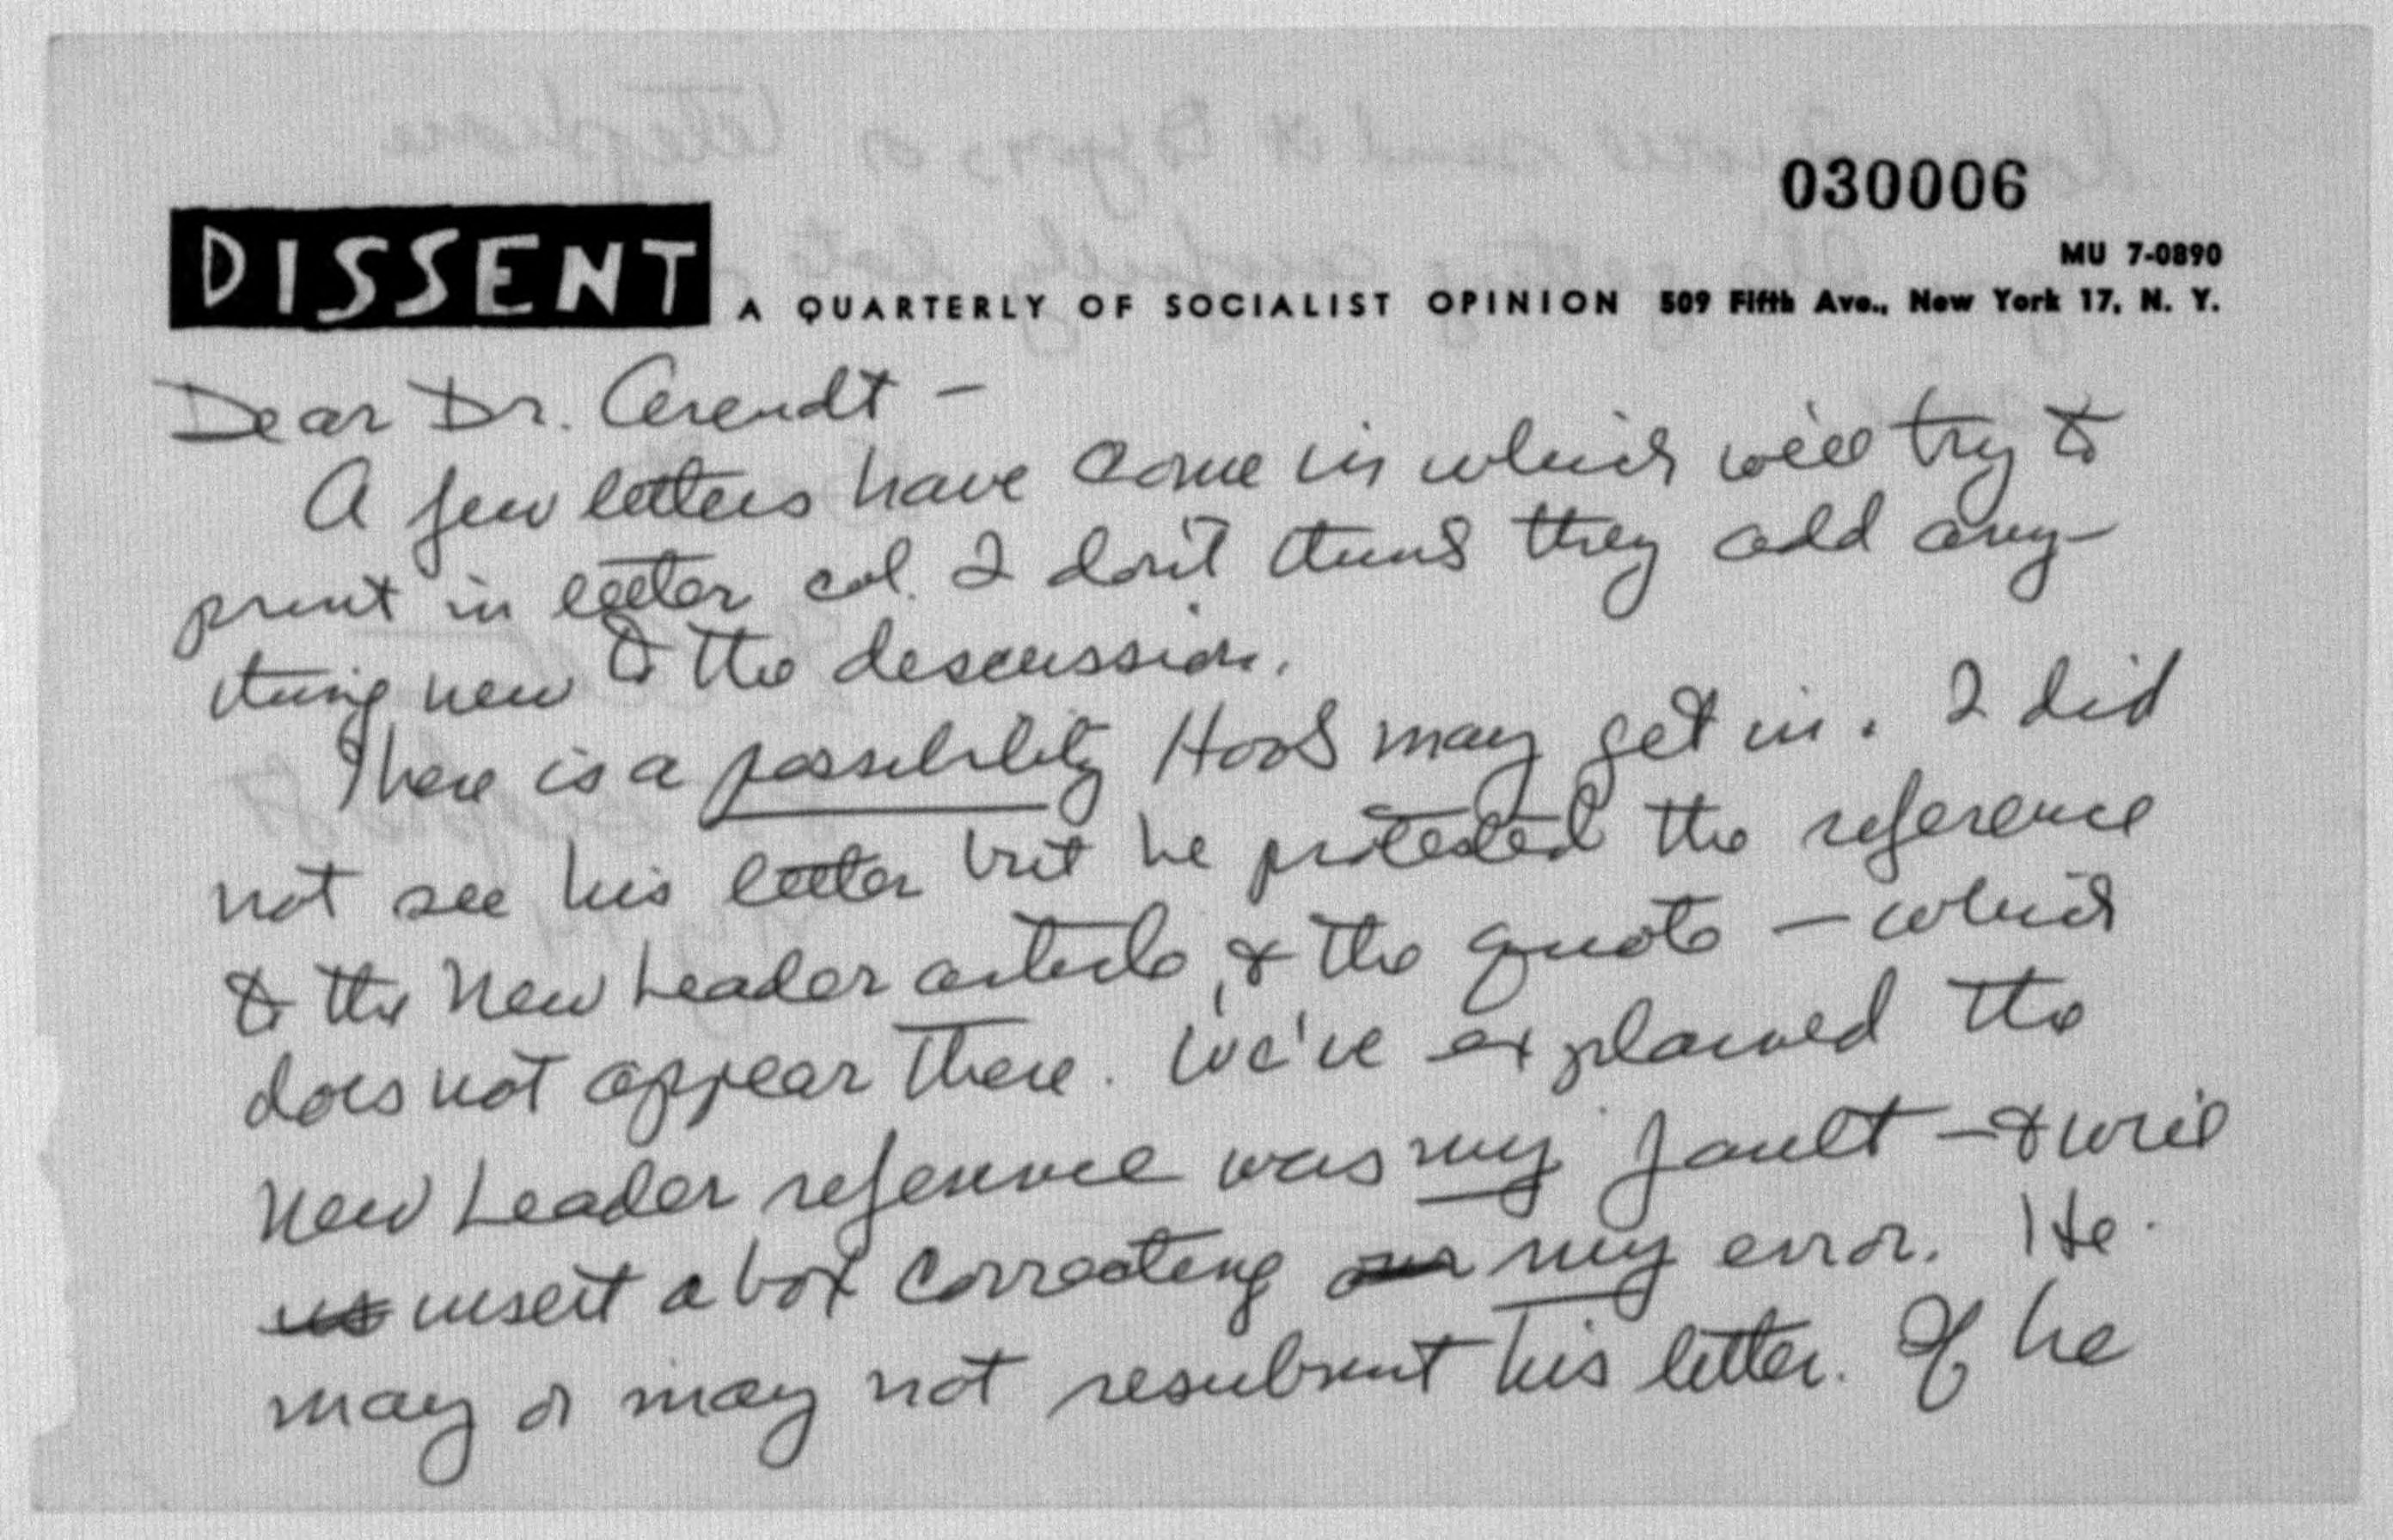 030006
MU 7-0890
DISSENT A QUARTERLY OF SOCIALIST OPINION 509 Fifth Ave., New York 17, N. Y.
Dear Dr. Arendt -
A few letters have come in which we'll try to
print in letter col. I don't think they add any-
thing new to the discussion.
There is a possibility Hook may get in. I did
not see his letter but he protested the reference
to the New Leader article, & the quote - which
does not appear there. We've explained the
New Leader reference was my fault - & will
insert a box correcting our my error. He
may or may not resubmit his letter. If he